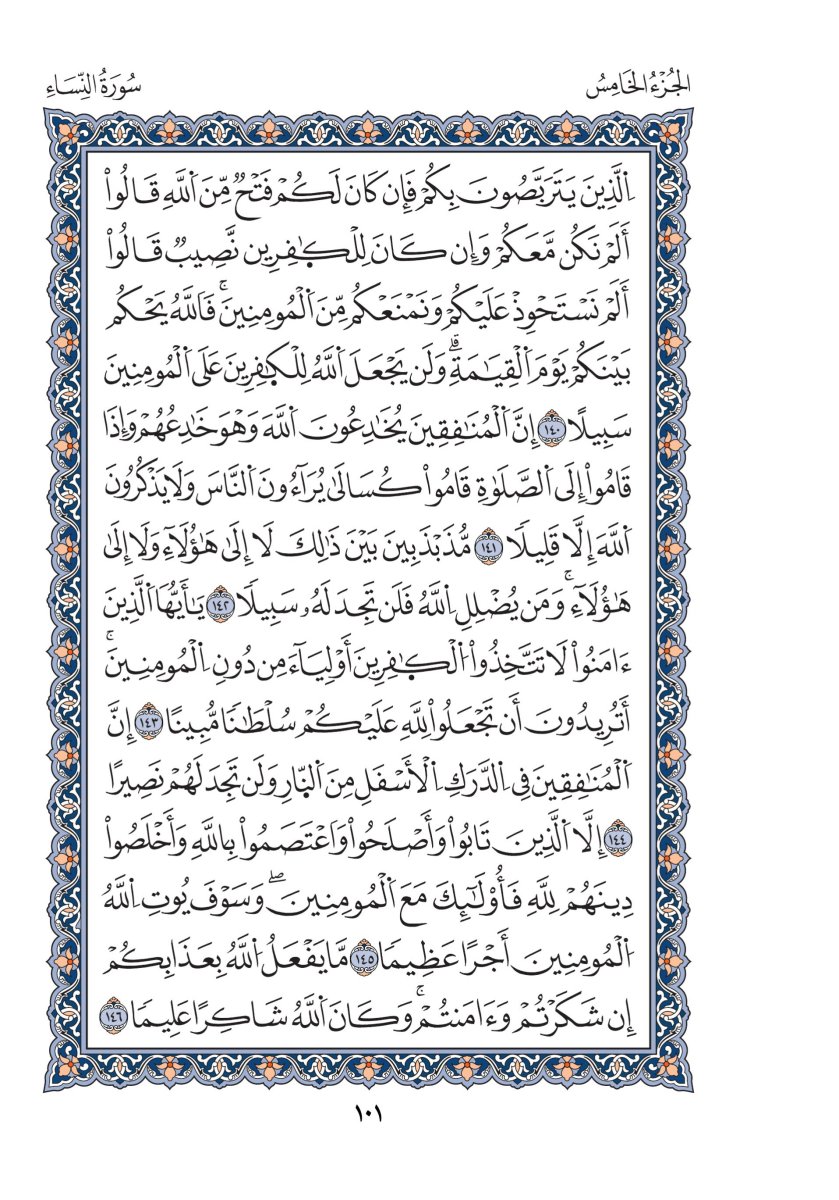 الجُزْءُ الخَامِسُ
سُورَةُ النِّسَاءِ
اِ۬لذِينَ يَتَرَبَّصُونَ بِكُمْ فَإِن كَانَ لَكُمْ فَتْحٌ مِّنَ اَ۬للَّهِ قَالُواْ
أَلَمْ نَكُن مَّعَكُمْ وَإِن كَانَ لِلْكٰ۪فِرِينَ نَصِيبٌ قَالُواْ
أَلَمْ نَسْتَحْوِذْ عَلَيْكُمْ وَنَمْنَعْكُم مِّنَ اَ۬لْمُومِنِينَۚ فَاللَّهُ يَحْكُم
بَيْنَكُمْ يَوْمَ اَ۬لْقِيَٰمَةِۗ وَلَن يَجْعَلَ اَ۬للَّهُ لِلْكٰ۪فِرِينَ عَلَى اَ۬لْمُومِنِينَ
سَبِيلًا ١٤٠ إِنَّ اَ۬لْمُنَٰفِقِينَ يُخَٰدِعُونَ اَ۬للَّهَ وَهْوَ خَٰدِعُهُمْ وَإِذَا
قَامُواْ إِلَى اَ۬لصَّلَوٰةِ قَامُواْ كُسَالَىٰ يُرَآءُونَ اَ۬لنَّاسَ وَلَا يَذْكُرُونَ
اَ۬للَّهَ إِلَّا قَلِيلًا ١٤١ مُّذَبْذَبِينَ بَيْنَ ذَٰلِكَ لَا إِلَىٰ هَٰؤُلَآءِ وَلَا إِلَىٰ
هَٰؤُلَآءِۚ وَمَن يُضْلِلِ اِ۬للَّهُ فَلَن تَجِدَ لَهُۥ سَبِيلًا ١٤٢ يَٰأَيُّهَا اَ۬لذِينَ
ءَامَنُواْ لَا تَتَّخِذُواْ اُ۬لْكٰ۪فِرِينَ أَوْلِيَآءَ مِن دُونِ اِ۬لْمُومِنِينَۚ
أَتُرِيدُونَ أَن تَجْعَلُواْ لِلَّهِ عَلَيْكُمْ سُلْطَٰنًا مُّبِينًا ١٤٣ إِنَّ
اَ۬لْمُنَٰفِقِينَ فِي اِ۬لدَّرَكِ اِ۬لْأَسْفَلِ مِنَ اَ۬لنّ۪ارِ وَلَن تَجِدَ لَهُمْ نَصِيرًا
١٤٤ إِلَّا اَ۬لذِينَ تَابُواْ وَأَصْلَحُواْ وَاعْتَصَمُواْ بِاللَّهِ وَأَخْلَصُواْ
دِينَهُمْ لِلَّهِ فَأُوْلَٰٓئِكَ مَعَ اَ۬لْمُومِنِينَۖ وَسَوْفَ يُوتِ اِ۬للَّهُ
اُ۬لْمُومِنِينَ أَجْرًا عَظِيمًا ١٤٥ مَّا يَفْعَلُ اُ۬للَّهُ بِعَذَابِكُمْ
إِن شَكَرْتُمْ وَءَامَنتُمْۚ وَكَانَ اَ۬للَّهُ شَاكِرًا عَلِيمًا ١٤٦
١٠١